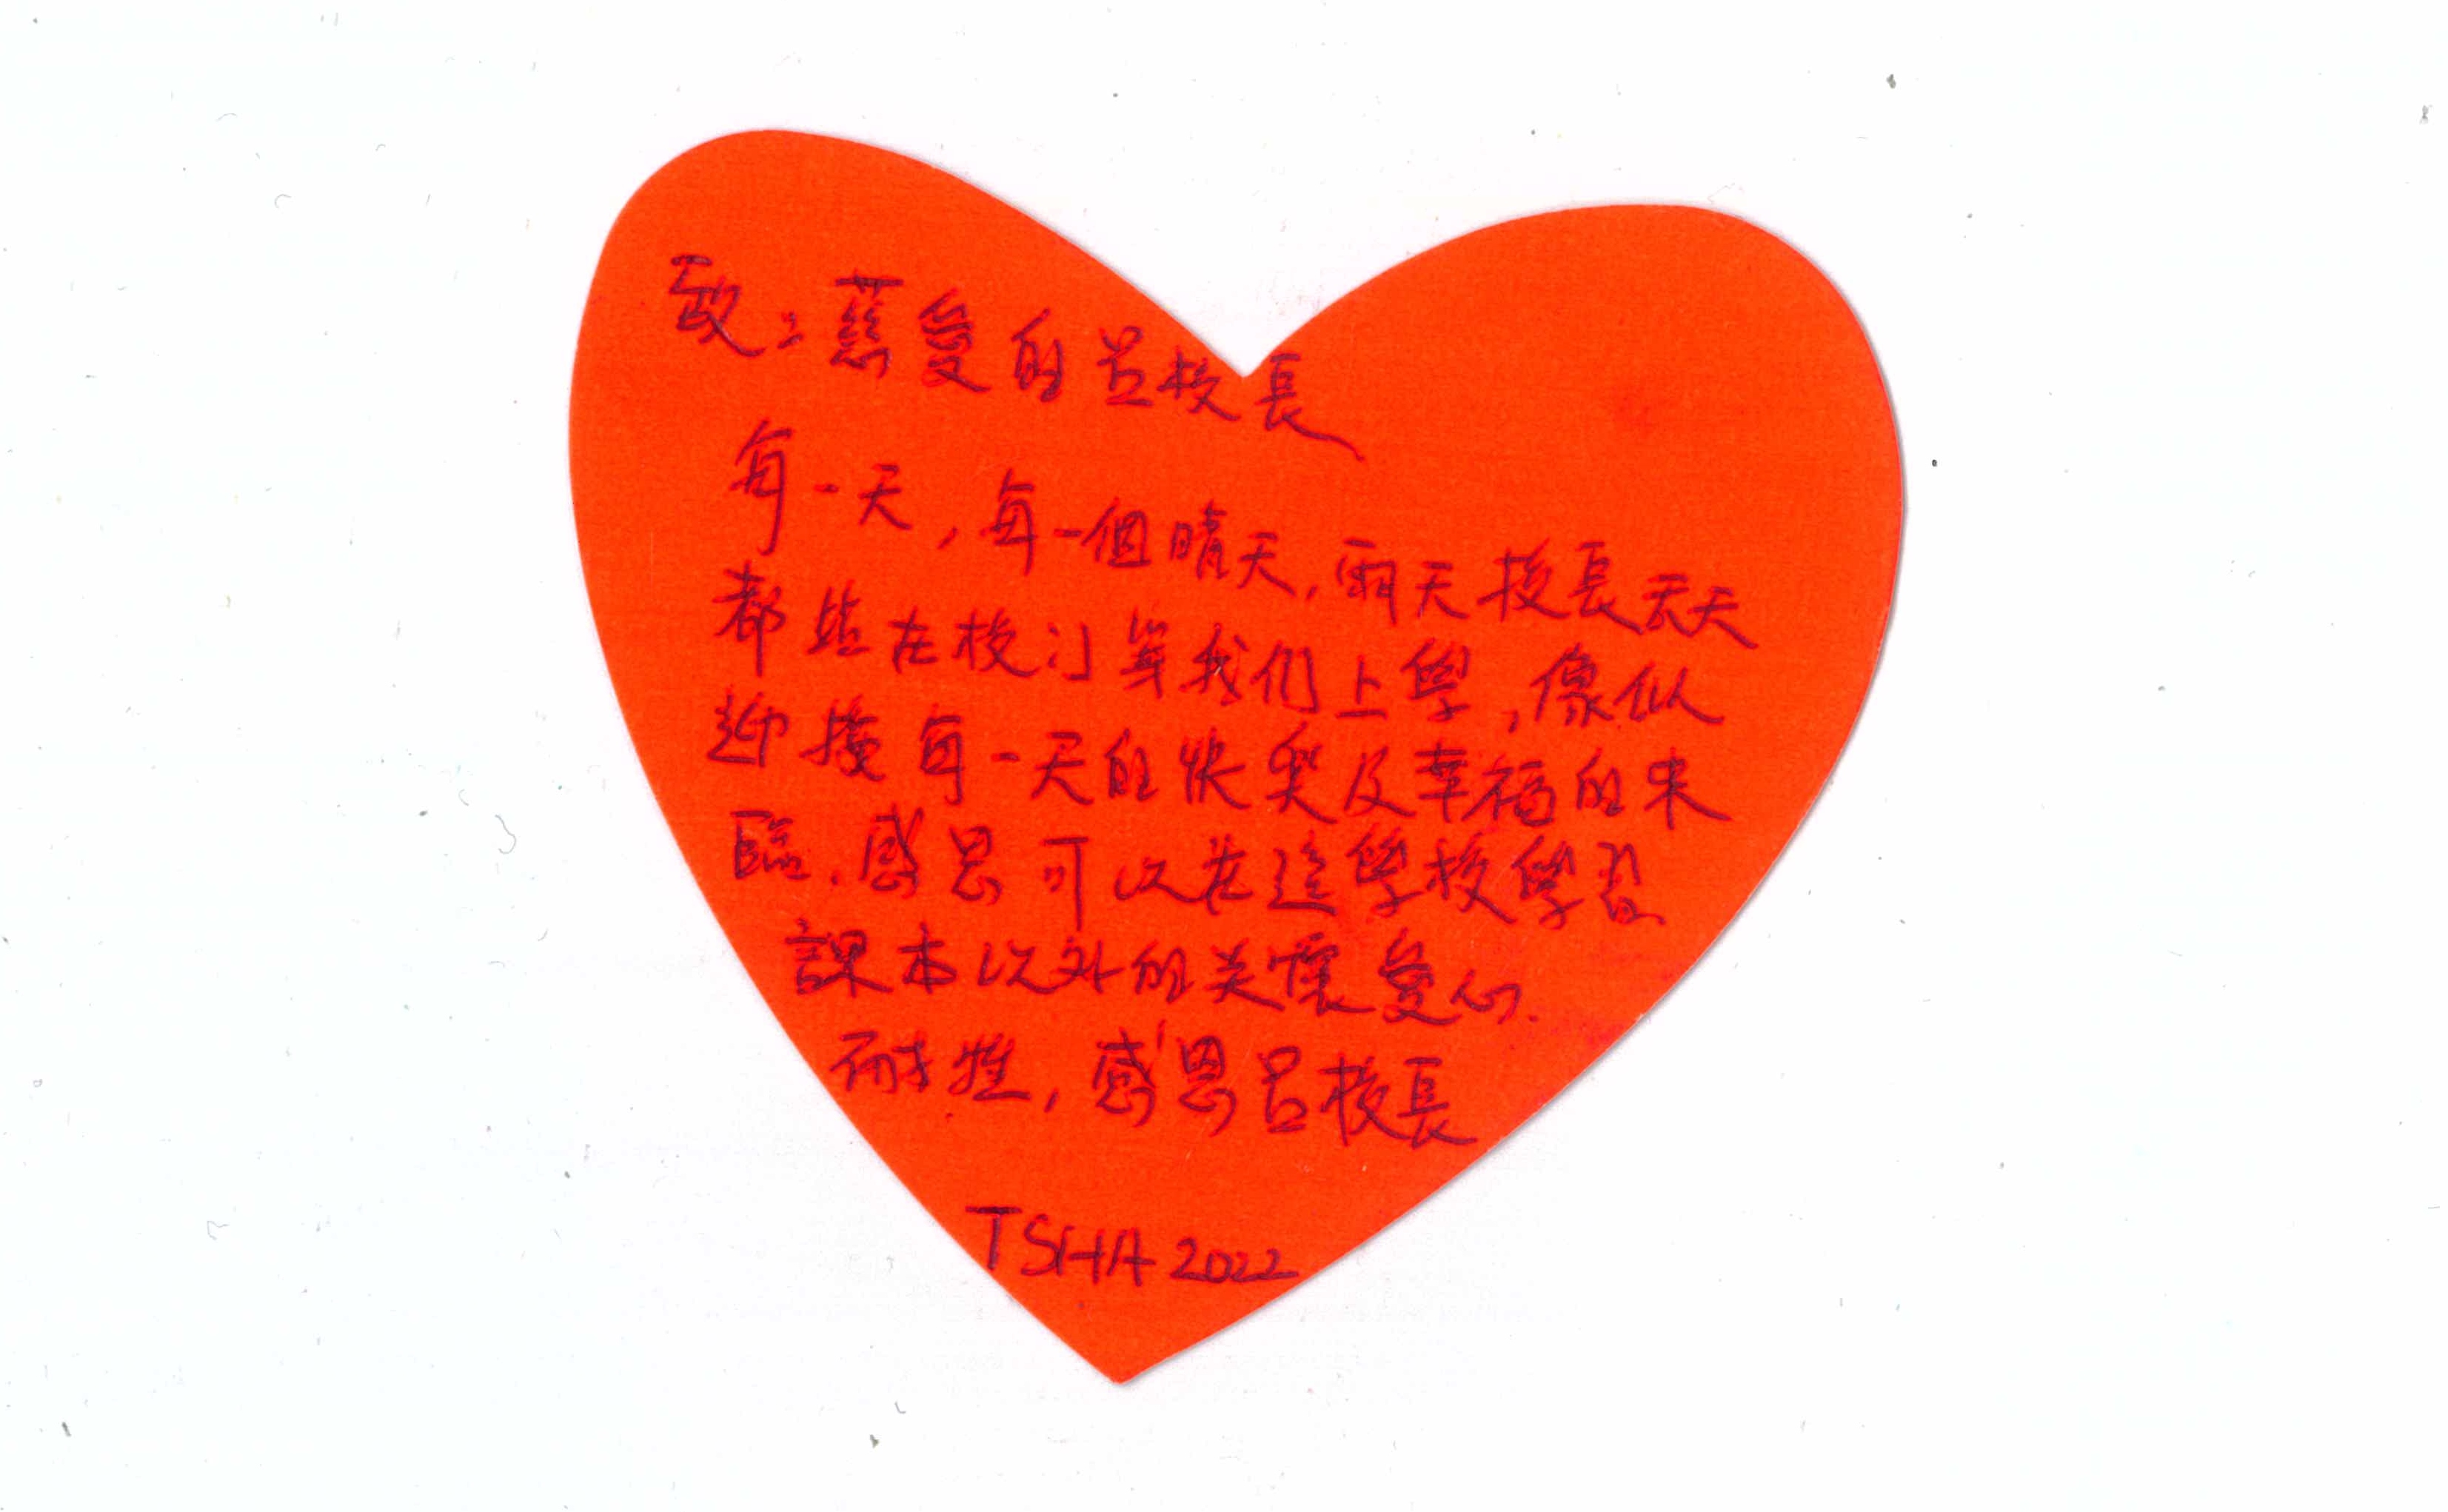 致：慈愛的呂校長
每一天，每一個晴天，雨天校長天天
都站在校门等我们上學，像似
迎接每一天的快樂及幸福的来
臨．感恩可以在這學校學習
課本以外的关懷愛心．
耐性，感恩呂校長
TSHA 2022